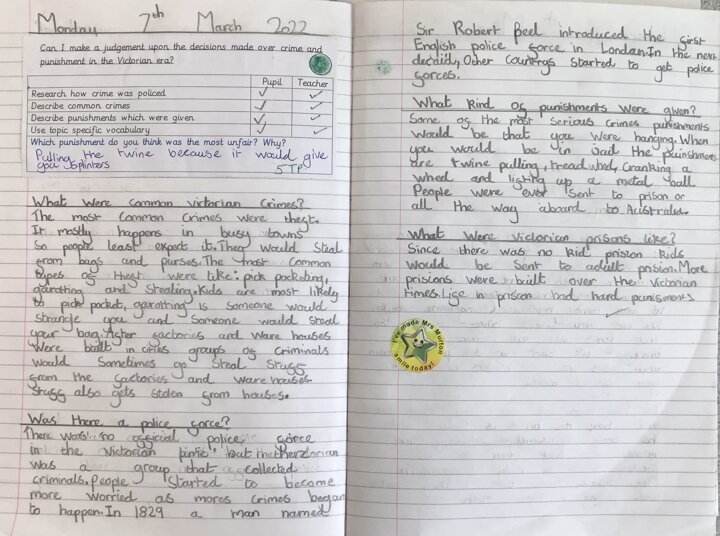 Monday 7th March 2022
Can I make a judgement upon the decisions made over crime and
punishment in the Victorian era?
Pupil Teacher
Research how crime was policed
Describe common crimes
Describe punishments which were given
Use topic specific vocabulary
Which punishment do you think was the most unfair? Why?
Pulling the twine because it would give
you splinters
5TP
What were common victorian Crimes?
The most Common Crimes were theft.
It mostly happens in busy towns
So people least expect it. They would Steal
from bags and purses. The most Common
types of theft were like: pick pocketing,
garotting and Stealing. Kids are most likely
to pick pocket, garotting is Someone would
Strangle you and Someone would Steal
your bag. After factories and Ware houses
Were built in cities groups of Criminals
Would Sometimes go Steal Stuff
from the factories and ware houses.
Stuff also gets Stolen from houses.
Was there a police force?
There was no official police force
in the Victorian time, but
was a group that collected
criminals. People Started to become
more worried as mores Crimes began
to happen. In 1829 a man named
Sir Robert Peel introduced the first
English police force in London. In the next
Other Countrys Started to get police
forces.
What Kind of punishments Were given?
Some of the most Serious Crimes punishments
Would be that you Were hanging. When
you would be in Jail the punishments
are twine pulling, tread wheel, Cranking a
wheel and lifting up a metal ball.
People were ever Sent to prison or
all the way aboard to Australia.
What Were Victorian prisons like?
Since there was no kid prison kids
Would be Sent to adult prision. More
prisions were built over the Victorian
times. Life in prison had hard punisments
I've made Mrs Murton
smile today!